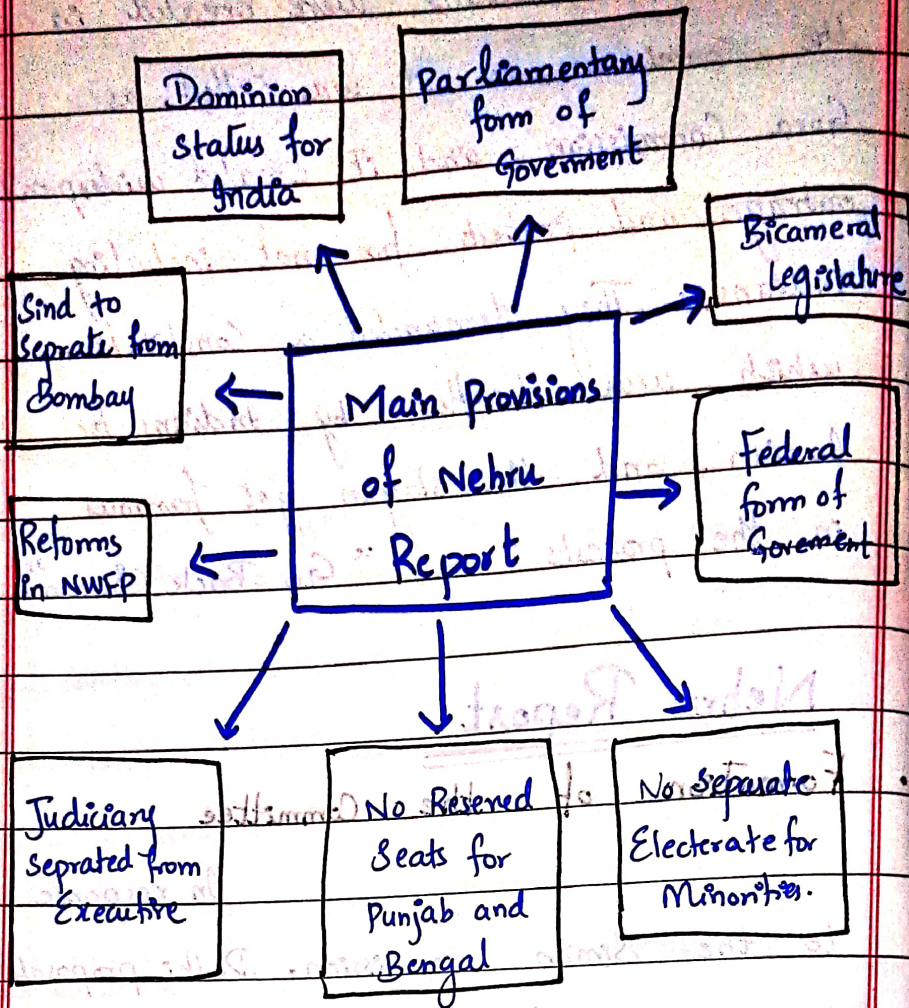 Dominion
Status for
India
Parliamentary
form of
Goverment
Bicameral
Legislature
Sind to
Seprate from
Bombay
Main Provisions
of Nehru
Report
Federal
form of
Goverment
Reforms
in NWFP
Judiciary
Seprated from
Executive
No Reserved
Seats for
Punjab and
Bengal
No Separate
Electerate for
Minorities.